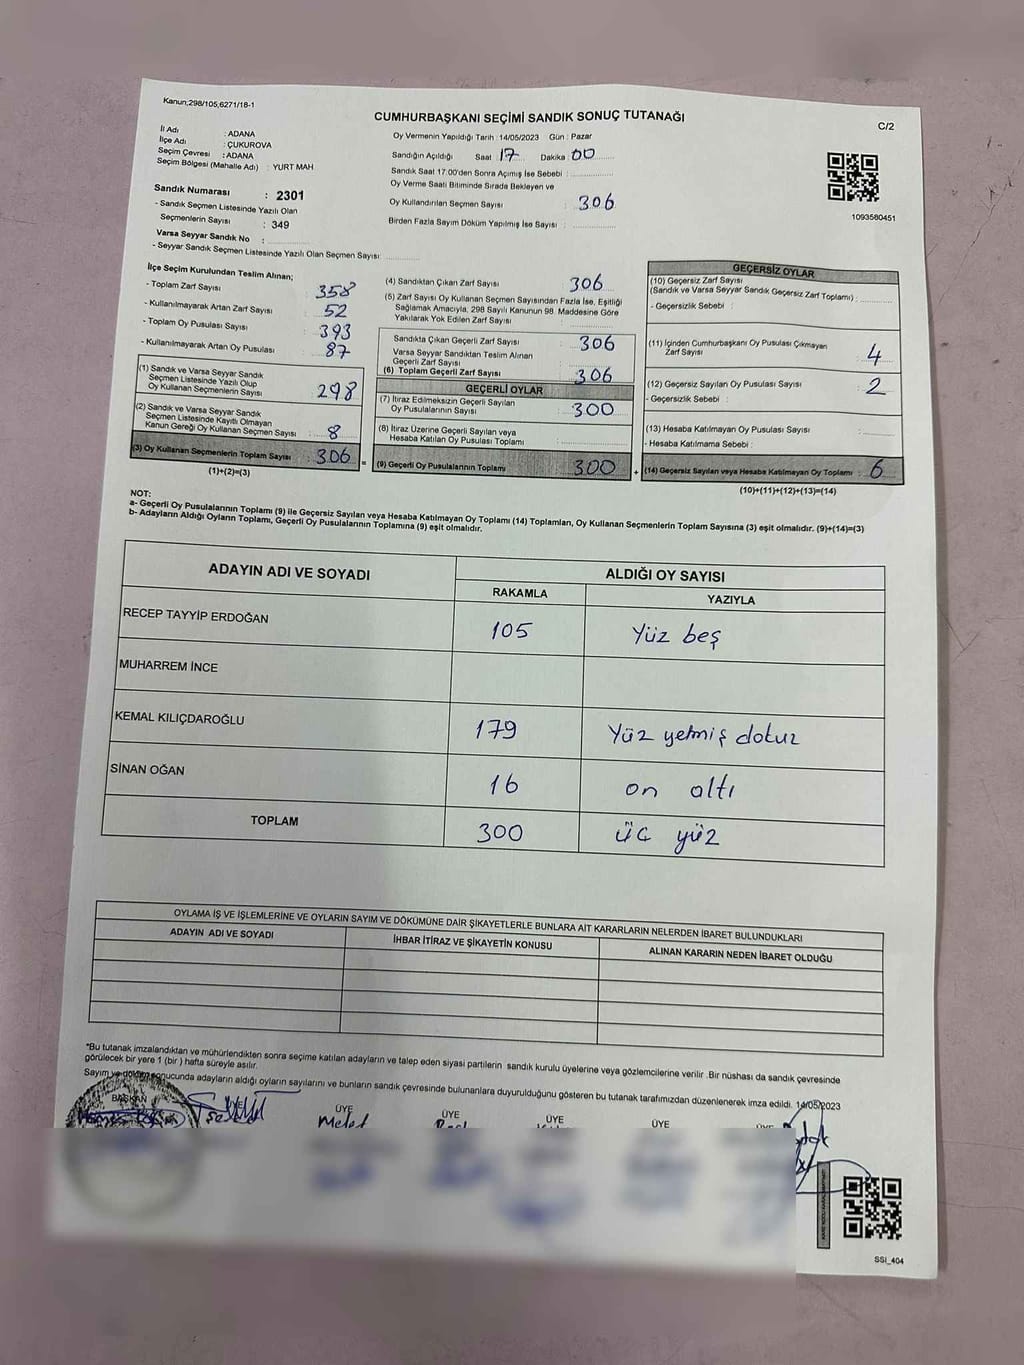 Kanun;298/105,6271/18-1
CUMHURBAŞKANI SEÇİMİ SANDIK SONUÇ TUTANAĞI
C/2
İl Adı : ADANA
İlçe Adı : ÇUKUROVA
Seçim Çevresi : ADANA
Seçim Bölgesi (Mahalle Adı) : YURT MAH
Sandık Numarası : 2301
- Sandık Seçmen Listesinde Yazılı Olan
Seçmenlerin Sayısı : 349
Varsa Seyyar Sandık No :
- Seyyar Sandık Seçmen Listesinde Yazılı Olan Seçmen Sayısı:
Oy Vermenin Yapıldığı Tarih : 14/05/2023 Gün : Pazar
Sandığın Açıldığı Saat 17 Dakika 00
Sandık Saat 17:00'den Sonra Açılmış İse Sebebi :
Oy Verme Saati Bitiminde Sırada Bekleyen ve
Oy Kullandırılan Seçmen Sayısı : 306
Birden Fazla Sayım Döküm Yapılmış İse Sayısı :
1093580451
İlçe Seçim Kurulundan Teslim Alınan;
- Toplam Zarf Sayısı : 358
- Kullanılmayarak Artan Zarf Sayısı : 52
- Toplam Oy Pusulası Sayısı : 393
- Kullanılmayarak Artan Oy Pusulası : 87
(1) Sandık ve Varsa Seyyar Sandık
Seçmen Listesinde Yazılı Olup
Oy Kullanan Seçmenlerin Sayısı : 298
(2) Sandık ve Varsa Seyyar Sandık
Seçmen Listesinde Kayıtlı Olmayan
Kanun Gereği Oy Kullanan Seçmen Sayısı : 8
(3) Oy Kullanan Seçmenlerin Toplam Sayısı : 306
(1)+(2)=(3)
(4) Sandıktan Çıkan Zarf Sayısı 306
(5) Zarf Sayısı Oy Kullanan Seçmen Sayısından Fazla İse, Eşitliği
Sağlamak Amacıyla, 298 Sayılı Kanunun 98. Maddesine Göre
Yakılarak Yok Edilen Zarf Sayısı :
Sandıkta Çıkan Geçerli Zarf Sayısı : 306
Varsa Seyyar Sandıktan Teslim Alınan
Geçerli Zarf Sayısı :
(6) Toplam Geçerli Zarf Sayısı : 306
GEÇERLİ OYLAR
(7) İtiraz Edilmeksizin Geçerli Sayılan
Oy Pusulalarının Sayısı : 300
(8) İtiraz Üzerine Geçerli Sayılan veya
Hesaba Katılan Oy Pusulası Toplamı :
= (9) Geçerli Oy Pusulalarının Toplamı 300
GEÇERSİZ OYLAR
(10) Geçersiz Zarf Sayısı
(Sandık ve Varsa Seyyar Sandık Geçersiz Zarf Toplamı) :
- Geçersizlik Sebebi :
(11) İçinden Cumhurbaşkanı Oy Pusulası Çıkmayan
Zarf Sayısı : 4
(12) Geçersiz Sayılan Oy Pusulası Sayısı : 2
- Geçersizlik Sebebi :
(13) Hesaba Katılmayan Oy Pusulası Sayısı :
- Hesaba Katılmama Sebebi :
+ (14) Geçersiz Sayılan veya Hesaba Katılmayan Oy Toplamı : 6
(10)+(11)+(12)+(13)=(14)
NOT:
a- Geçerli Oy Pusulalarının Toplamı (9) ile Geçersiz Sayılan veya Hesaba Katılmayan Oy Toplamı (14) Toplamları, Oy Kullanan Seçmenlerin Toplam Sayısına (3) eşit olmalıdır. (9)+(14)=(3)
b- Adayların Aldığı Oyların Toplamı, Geçerli Oy Pusulalarının Toplamına (9) eşit olmalıdır.
ADAYIN ADI VE SOYADI
ALDIĞI OY SAYISI
RAKAMLA YAZIYLA
RECEP TAYYİP ERDOĞAN 105 Yüz beş
MUHARREM İNCE
KEMAL KILIÇDAROĞLU 179 Yüz yetmiş dokuz
SİNAN OĞAN 16 on altı
TOPLAM 300 üç yüz
OYLAMA İŞ VE İŞLEMLERİNE VE OYLARIN SAYIM VE DÖKÜMÜNE DAİR ŞİKAYETLERLE BUNLARA AİT KARARLARIN NELERDEN İBARET BULUNDUKLARI
ADAYIN ADI VE SOYADI İHBAR İTİRAZ VE ŞİKAYETİN KONUSU ALINAN KARARIN NEDEN İBARET OLDUĞU
*Bu tutanak imzalandıktan ve mühürlendikten sonra seçime katılan adayların ve talep eden siyasi partilerin sandık kurulu üyelerine veya gözlemcilerine verilir .Bir nüshası da sandık çevresinde
görülecek bir yere 1 (bir ) hafta süreyle asılır.
Sayım ve döküm sonucunda adayların aldığı oyların sayılarını ve bunların sandık çevresinde bulunanlara duyurulduğunu gösteren bu tutanak tarafımızdan düzenlenerek imza edildi. 14/05/2023
BAŞKAN ÜYE ÜYE ÜYE ÜYE ÜYE
SSI_404